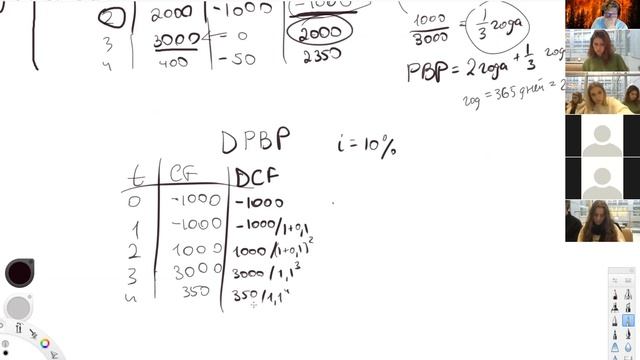 2 2000 -1000 -1000
3 3000 = 0 2000
4 400 -50 2350
1000/3000 = 1/3 года
PBP = 2 года + 1/3 год
год = 365 дней = 2
DPBP i = 10%
t CF DCF
0 -1000 -1000
1 -1000 -1000/1+0,1
2 1000 1000/(1+0,1)²
3 3000 3000/1,1³
4 350 350/1,1⁴